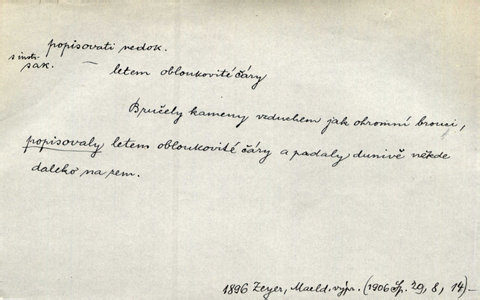 popisovati nedok.
s instr.
sak. — letem obloukovité čáry
Bručely kameny vzduchem jak ohromní brouci,
popisovaly letem obloukovité čáry a padaly dunivě někde
daleko na zem.
1896 Zeyer, Maeld. výpr. (1906 Sp. 29, 8, 14)—